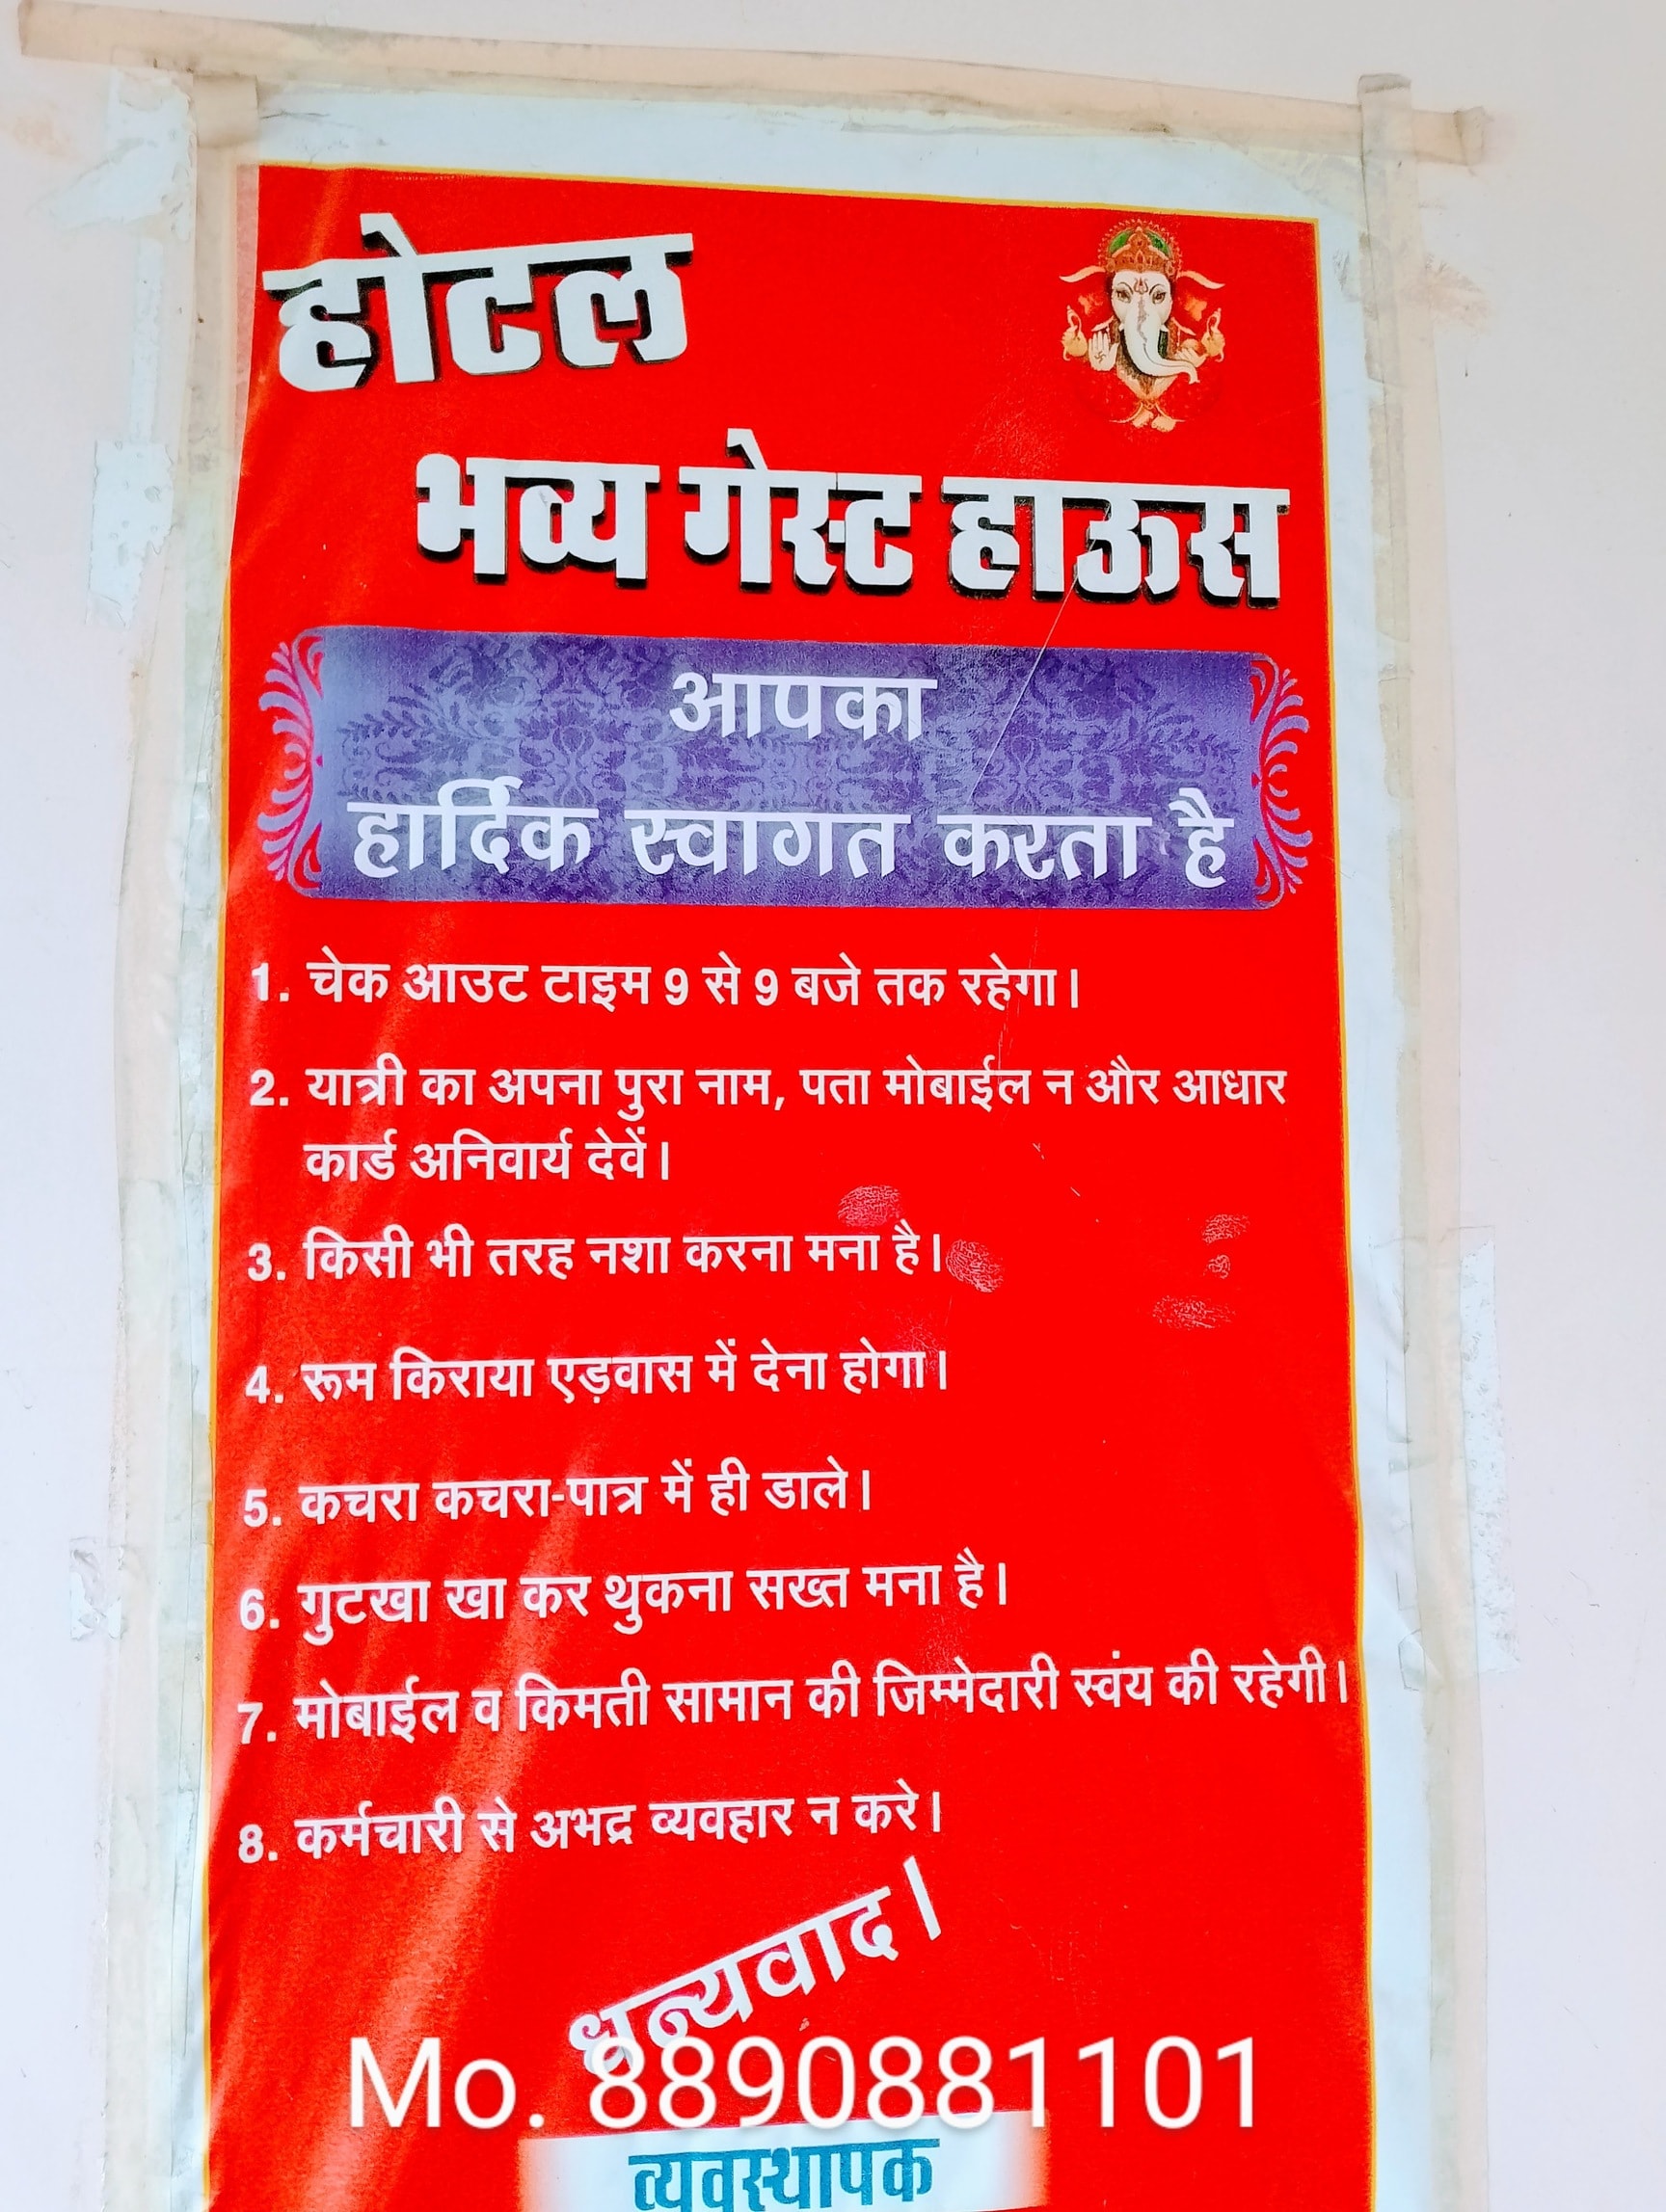 होटल
भव्य गेस्ट हाऊस
आपका
हार्दिक स्वागत करता है
1. चेक आउट टाइम 9 से 9 बजे तक रहेगा।
2. यात्री का अपना पुरा नाम, पता मोबाईल न और आधार
कार्ड अनिवार्य देवें।
3. किसी भी तरह नशा करना मना है।
4. रूम किराया एड़वास में देना होगा।
5. कचरा कचरा-पात्र में ही डाले।
6. गुटखा खा कर थुकना सख्त मना है।
7. मोबाईल व किमती सामान की जिम्मेदारी स्वंय की रहेगी।
8. कर्मचारी से अभद्र व्यवहार न करे।
धन्यवाद।
Mo. 8890881101
व्यवस्थापक